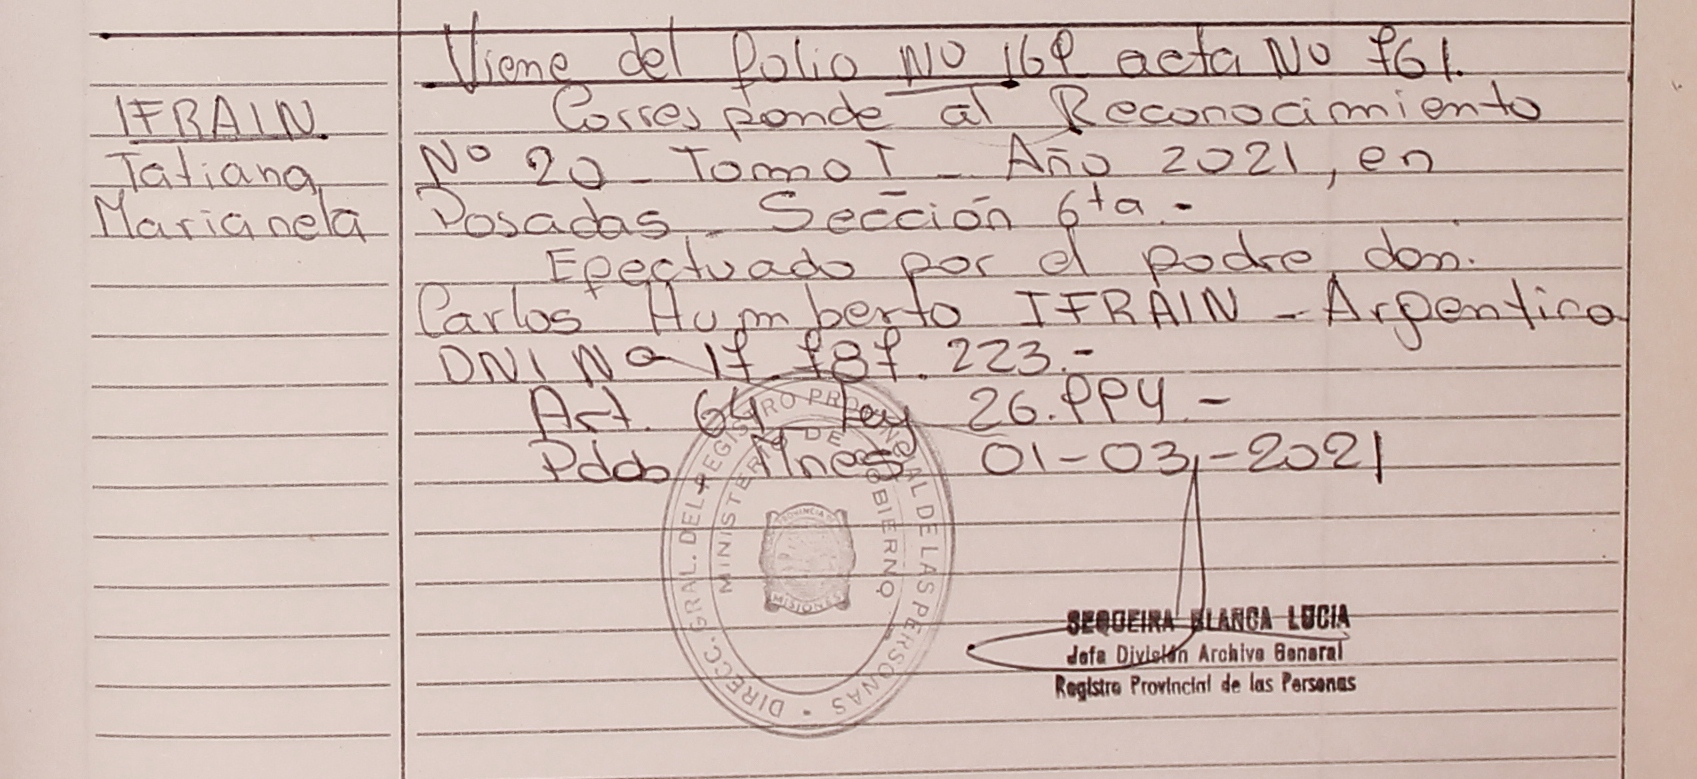 IFRAIN
Tatiana
Marianela
Viene del folio No 169 acta No 761.
Corresponde al Reconocimiento
Nº 20 - Tomo I - Año 2021, en
Posadas - Sección 6ta.-
Efectuado por el padre don.
Carlos Humberto IFRAIN - Argentino
DNI Nº 17.787.223.-
Art. 64 Ley 26.994.-
Pdas Mnes 01-03-2021
DIRECC. GRAL. DEL REGISTRO PROVINCIAL DE LAS PERSONAS
MINISTERIO DE GOBIERNO
PROVINCIA DE
MISIONES
SEQUEIRA BLANCA LUCIA
Jefa División Archivo General
Registro Provincial de las Personas